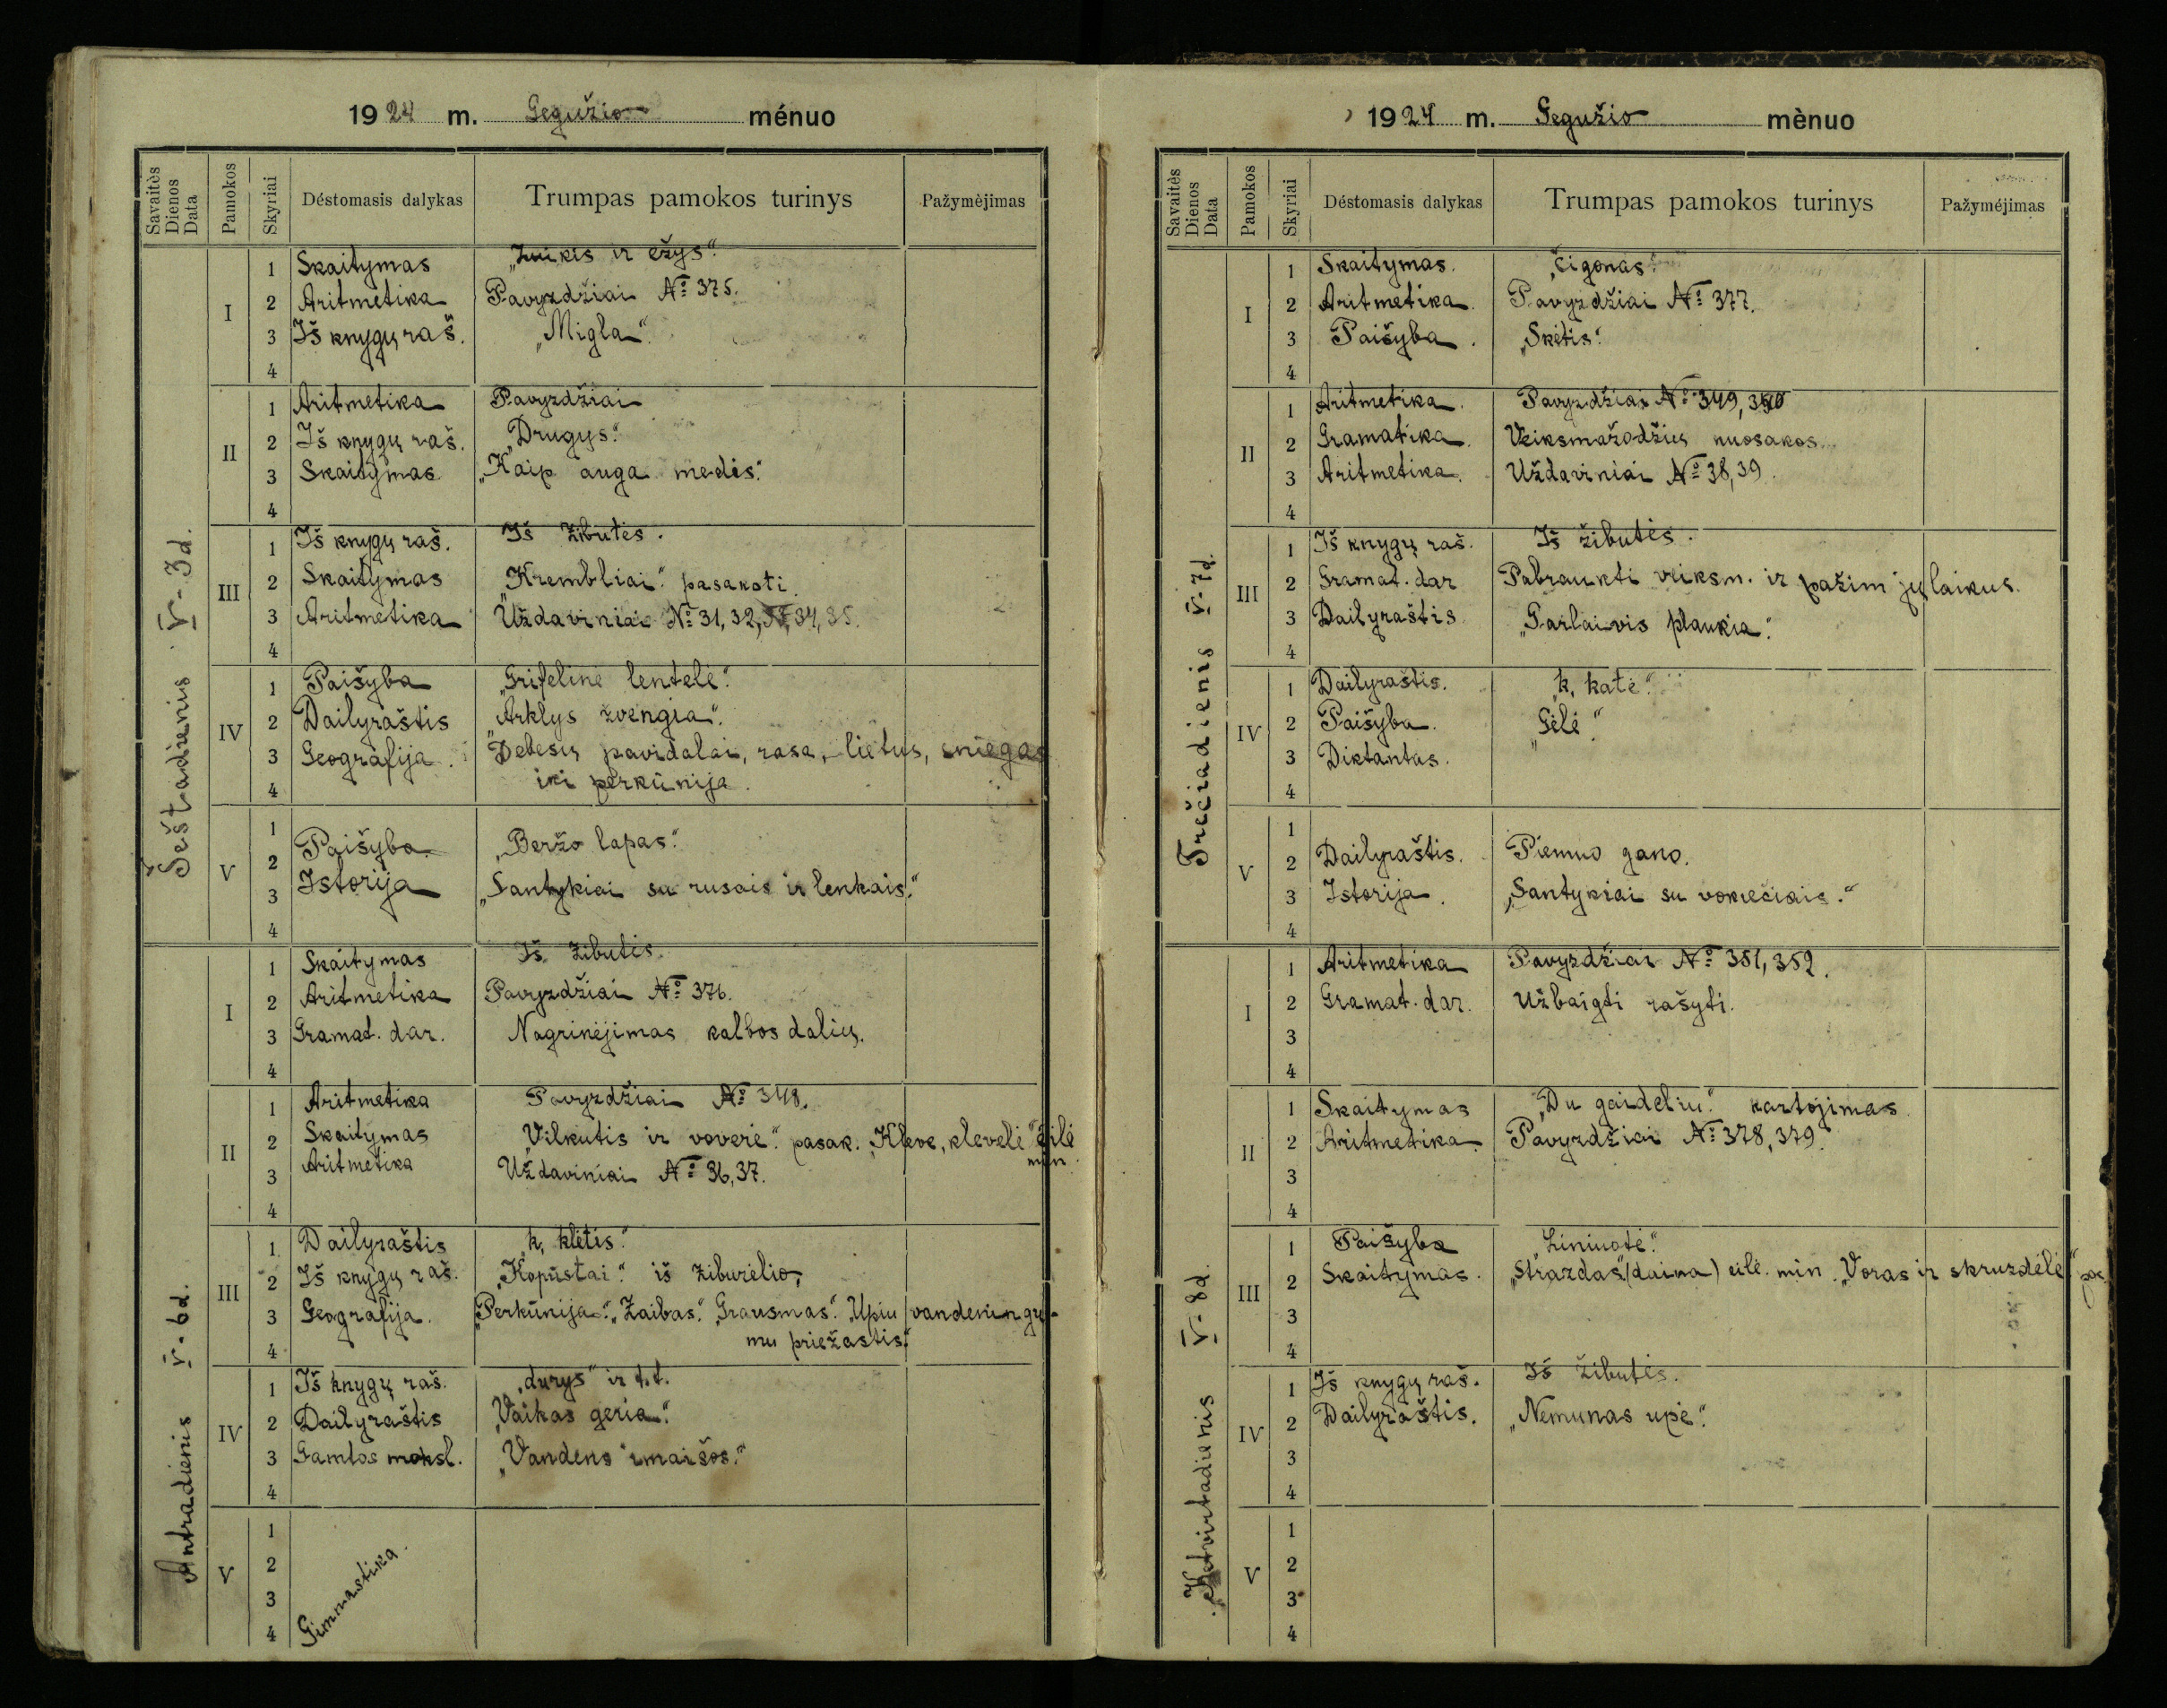 1924 m. Gegužio ménuo
Savaitès Dienos Data
Pamokos
Skyriai
Déstomasis dalykas
Trumpas pamokos turinys
Pažymèjimas
Šeštadienis V-3d.
I
1 Skaitymas „Zuikis ir ežys“.
2 Aritmetika Pavyzdžiai № 375.
3 Iš knygų raš. „Migla“.
4
II
1 Aritmetika Pavyzdžiai
2 Iš knygų raš. „Drugys“.
3 Skaitymas „Kaip auga medis“.
4
III
1 Iš knygų raš. Iš žibutės.
2 Skaitymas „Krembliai“ pasakoti.
3 Aritmetika Uždaviniai № 31, 32, 34, 35.
4
IV
1 Paišyba „Grifelinė lentelė“.
2 Dailyraštis „Arklys žvengia“.
3 Geografija. „Debesių pavidalai, rasa, lietus, sniegas
4 iki perkūnija.
V
1
2 Paišyba „Beržo lapas“.
3 Istorija „Santykiai su rusais ir lenkais.“
4
Antradienis V-6d.
I
1 Skaitymas Iš žibutės.
2 Aritmetika Pavyzdžiai № 376.
3 Gramat. dar. Nagrinėjimas kalbos dalių.
4
II
1 Aritmetika Pavyzdžiai № 348.
2 Skaitymas „Vilkutis ir voverė“. pasak. „Kleve, klevelė“ eilė
min.
3 Aritmetika Uždaviniai № 36, 37.
4
III
1 Dailyraštis „k, klėtis“.
2 Iš knygų raš. „Kopūstai“. iš žiburėlio,
3 Geografija. „Perkūnija“. „Žaibas“. „Grausmas“. „Upiu vandeningu-
4 mu priežastis“.
IV
1 Iš knygų raš. „durys“ ir t.t.
2 Dailyraštis „Vaikas geria“.
3 Gamtos moksl. „Vandens įmaišos.“
4
V
1
2
3
4
Gimnastika.
1924 m. Gegužio mènuo
Savaitès Dienos Data
Pamokos
Skyriai
Déstomasis dalykas
Trumpas pamokos turinys
Pažyméjimas
Trečiadienis V-7d.
I
1 Skaitymas. „Čigonas“.
2 Aritmetika. Pavyzdžiai № 377.
3 Paišyba. „Skėtis“.
4
II
1 Aritmetika. Pavyzdžiai № 349, 350
2 Gramatika. Veiksmažodžių nuosakos.
3 Aritmetika. Uždaviniai № 38, 39.
4
III
1 Iš knygų raš. Iš žibutės.
2 Gramat. dar Pabraukti veiksm. ir pažim jų laikus.
3 Dailyraštis „Garlaivis plaukia“.
4
IV
1 Dailyraštis. „k, katė“.
2 Paišyba. „Gėlė“.
3 Diktantas.
4
V
1
2 Dailyraštis. Piemuo gano.
3 Istorija. „Santykiai su vokiečiais.“
4
Ketvirtadienis V-8d.
I
1 Aritmetika Pavyzdžiai № 351, 352.
2 Gramat. dar. Užbaigti rašyti.
3
4
II
1 Skaitymas „Du gaideliu“. kartojimas.
2 Aritmetika. Pavyzdžiai № 378, 379.
3
4
III
1 Paišyba „Liniuotė“.
2 Skaitymas. „Strazdas“ (daina) eilė. min. „Voras ir skruzdėlė“
3
4
IV
1 Iš knygų raš. Iš žibutės.
2 Dailyraštis. „Nemunas upė“.
3
4
V
1
2
3
4